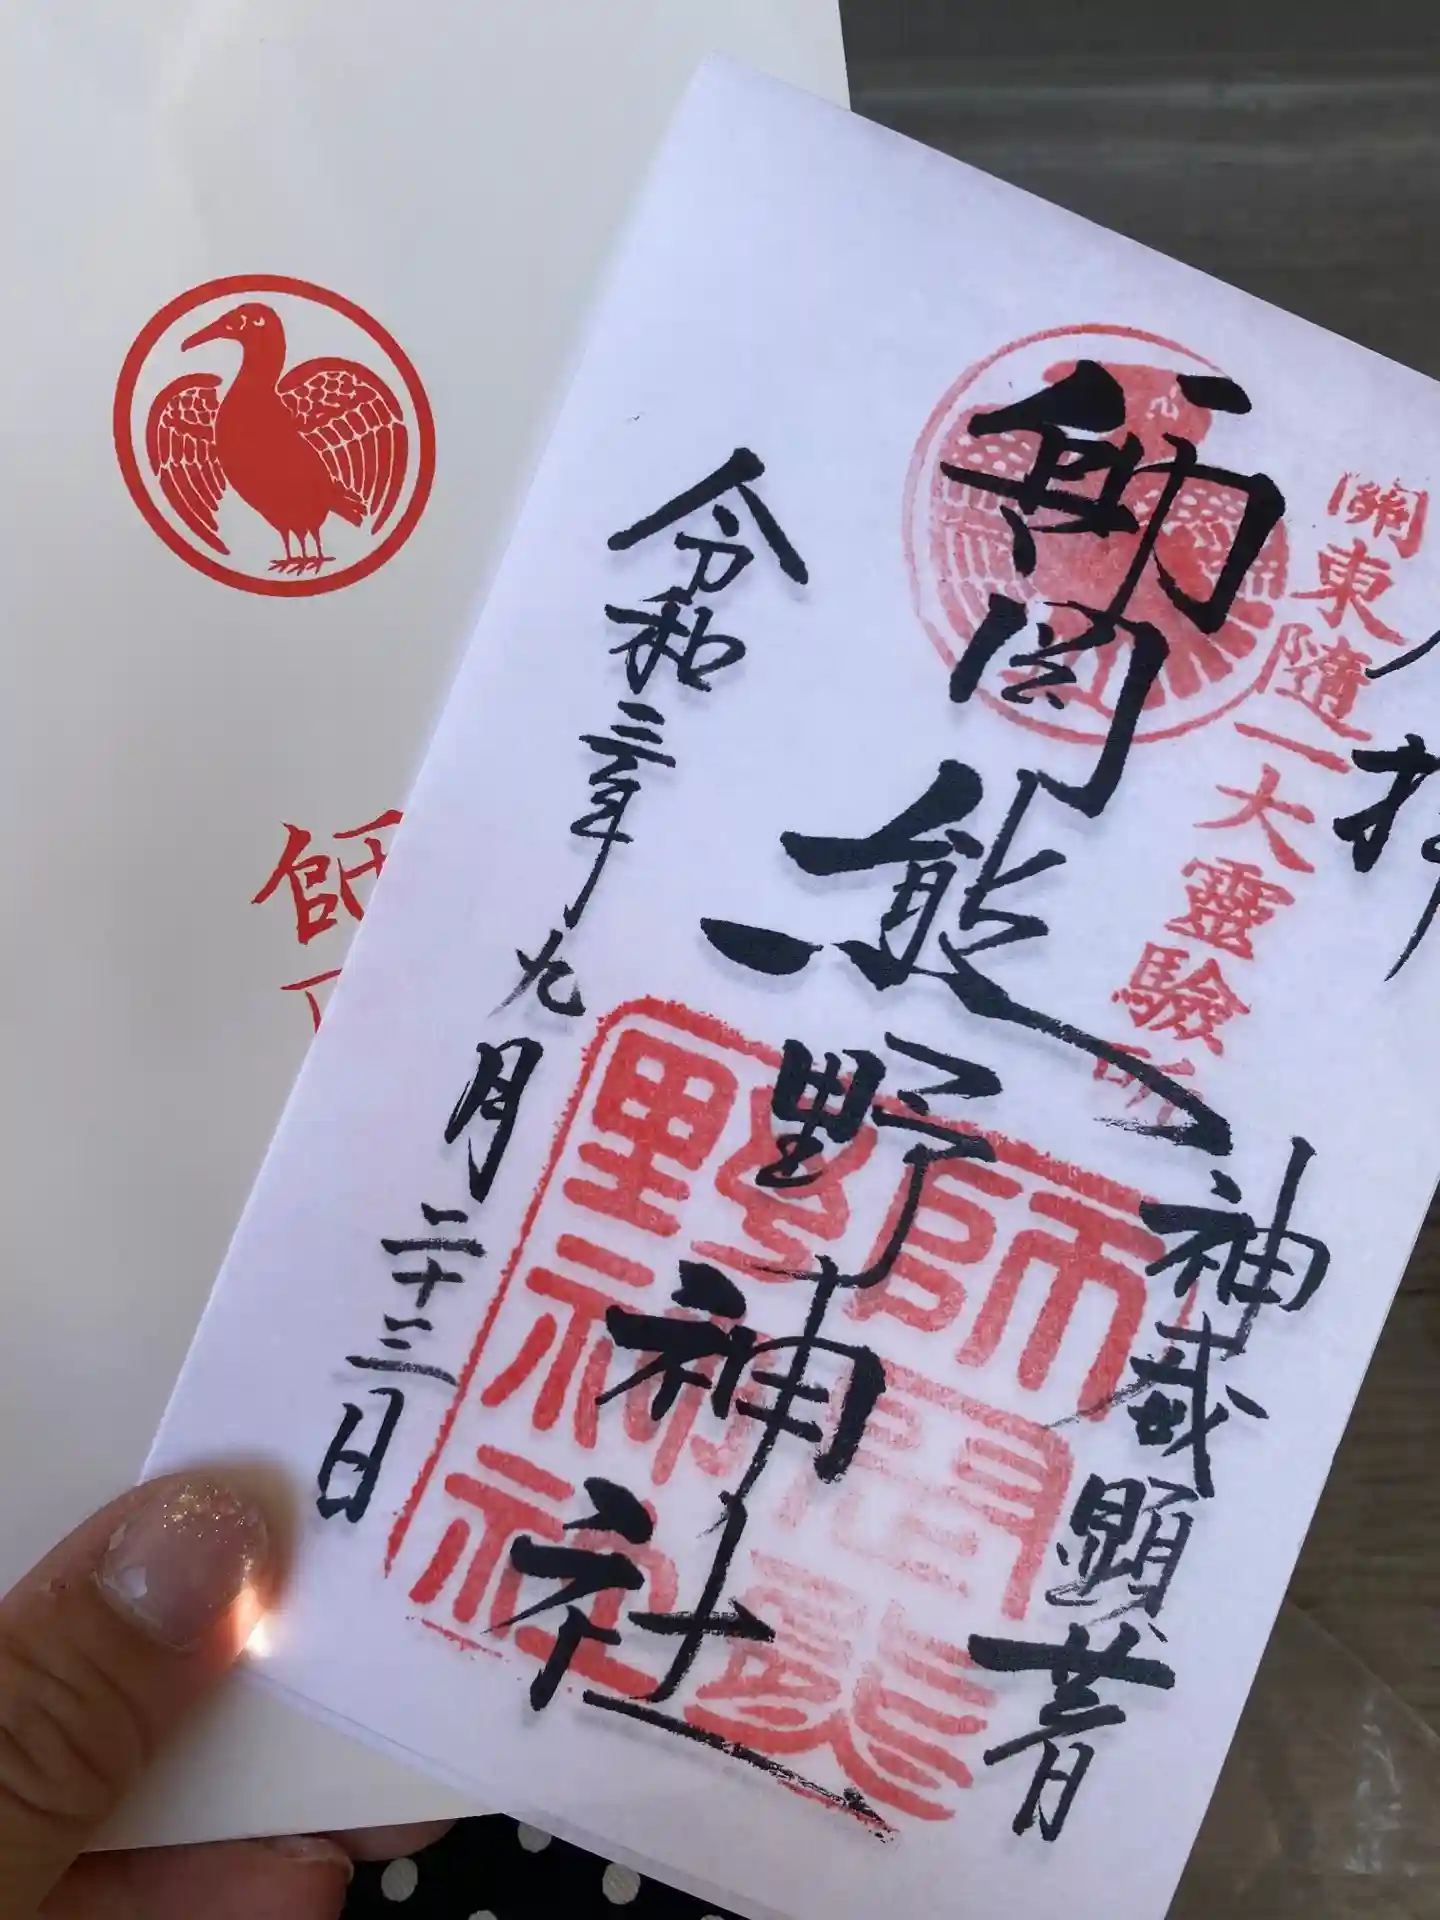 拝
關東随一大靈驗所
神威顕著
師岡熊野神社
師岡熊野神社
令和三年九月二十三日
師